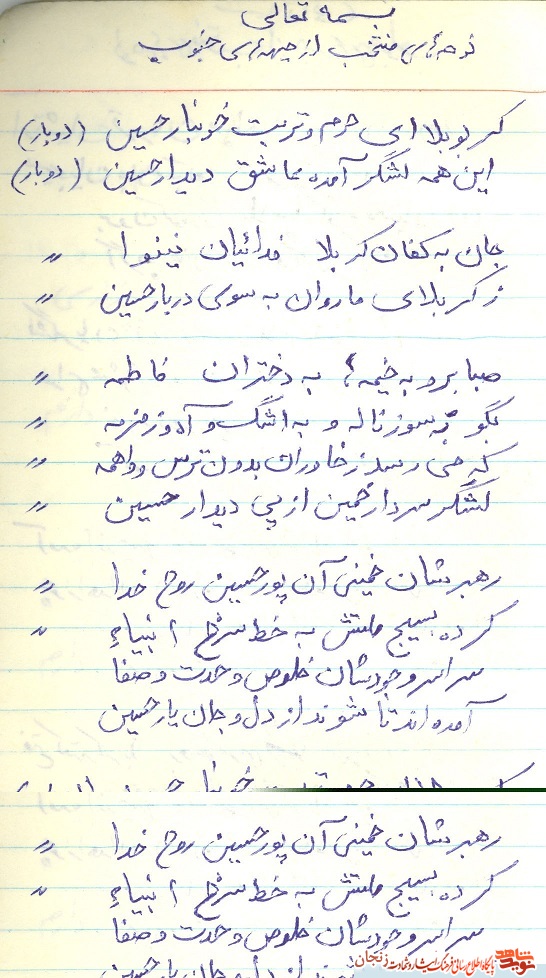 بسمه تعالی
نوحه‌های منتخب از جبهه‌های جنوب
کربوبلا ای حرم و تربت خونبار حسین (دوبار)
این همه لشگر آمده عاشق دیدار حسین (دوبار)
جان به کفان کربلا فدائیان نینوا 〃
ز کربلای ما روان به سوی دربار حسین 〃
صبا برو به خیمه‌ها به دختران فاطمه 〃
بگو به سوز ناله و به اشک و آه و زمزمه 〃
که می رسد ز خاوران بدون ترس و واهمه 〃
لشگر سردار خمین از پی دیدار حسین 〃
رهبرشان خمینی آن پور حسین روح خدا 〃
کرده بسیج ملتش به خط سرخ انبیاء 〃
سراسر وجودشان خلوص و وحدت و صفا
آمده اند تا شوند از دل و جان یار حسین
رهبرشان خمینی آن پور حسین روح خدا 〃
کرده بسیج ملتش به خط سرخ انبیاء 〃
سراسر وجودشان خلوص و وحدت و صفا
نوید شاهد
پایگاه اطلاع رسانی فرهنگ ایثار و شهادت زنجان